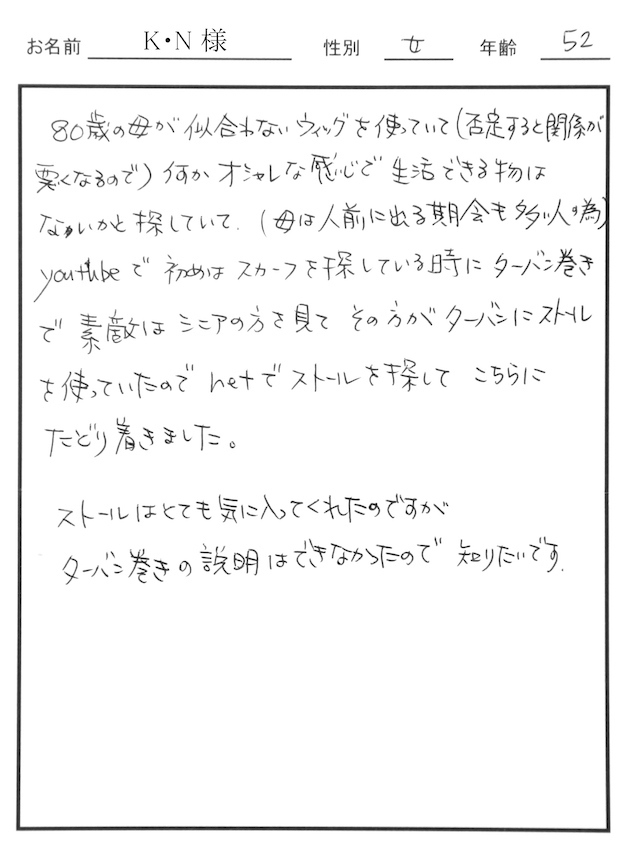 お名前 K・N 様 性別 女 年齢 52
80歳の母が似合わないウィッグを使っていて(否定すると関係が
悪くなるので)何かオシャレな感じで生活できる物は
ないかと探していて.(母は人前に出る期会も多い人の為)
youtubeで初めはスカーフを探している時にターバン巻き
で素敵はシニアの方を見てその方がターバンにストール
を使っていたのでnetでストールを探してこちらに
たどり着きました。
ストールはとても気に入ってくれたのですが
ターバン巻きの説明はできなかったので知りたいです.